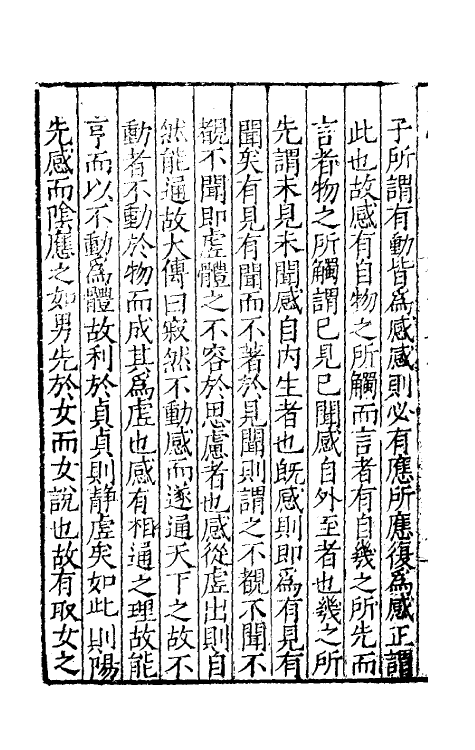 子所謂有動皆爲感感則必有應所應復爲感正謂
此也故感有自物之所觸而言者有自幾之所先而
言者物之所觸謂已見已聞感自外至者也幾之所
先謂未見未聞感自内生者也旣感則即爲有見有
聞矣有見有聞而不著於見聞則謂之不覩不聞不
覩不聞即虛體之不容於思慮者也感從虛出則自
然能通故大傳曰寂然不動感而遂通天下之故不
動者不動於物而成其爲虛也感有相通之理故能
亨而以不動爲體故利於貞貞則静虛矣如此則陽
先感而陰應之如男先於女而女說也故有取女之